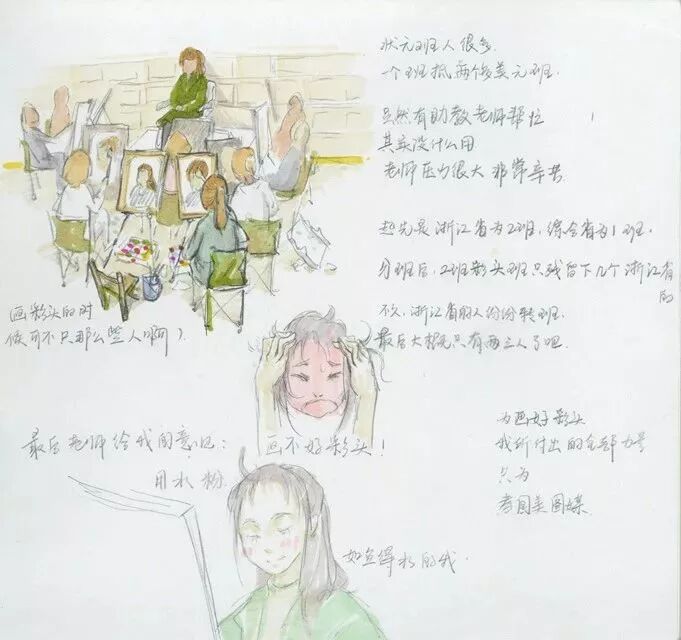 状元班人很多
一个班抵两个俊美元班.
虽然有助教老师帮忙
其实没什么用
老师压力很大 非常辛苦
起先是浙江省为2班,综合省为1班.
分班后,2班彩头班只残留下几个浙江省的
不久,浙江省的人份份转班.
最后大概只有两三人了吧.
画彩头的时
候可不只那么些人啊)
最后老师给我的意见:
用水粉.
画不好彩头!
为画好彩头
我所付出的全部力量
只为
考国美图媒
如鱼得水的我.